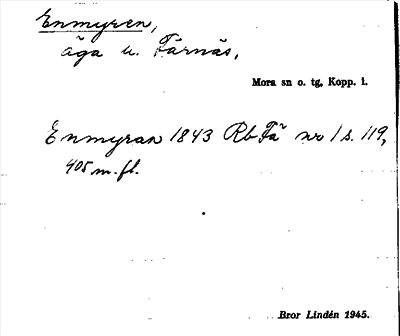 Enmyren,
äga u. Färnäs,
Mora sn o. tg, Kopp. l.
Enmyran 1843 Rb Fä nr 1 s. 119,
405 m.fl.
Bror Lindén 1945.